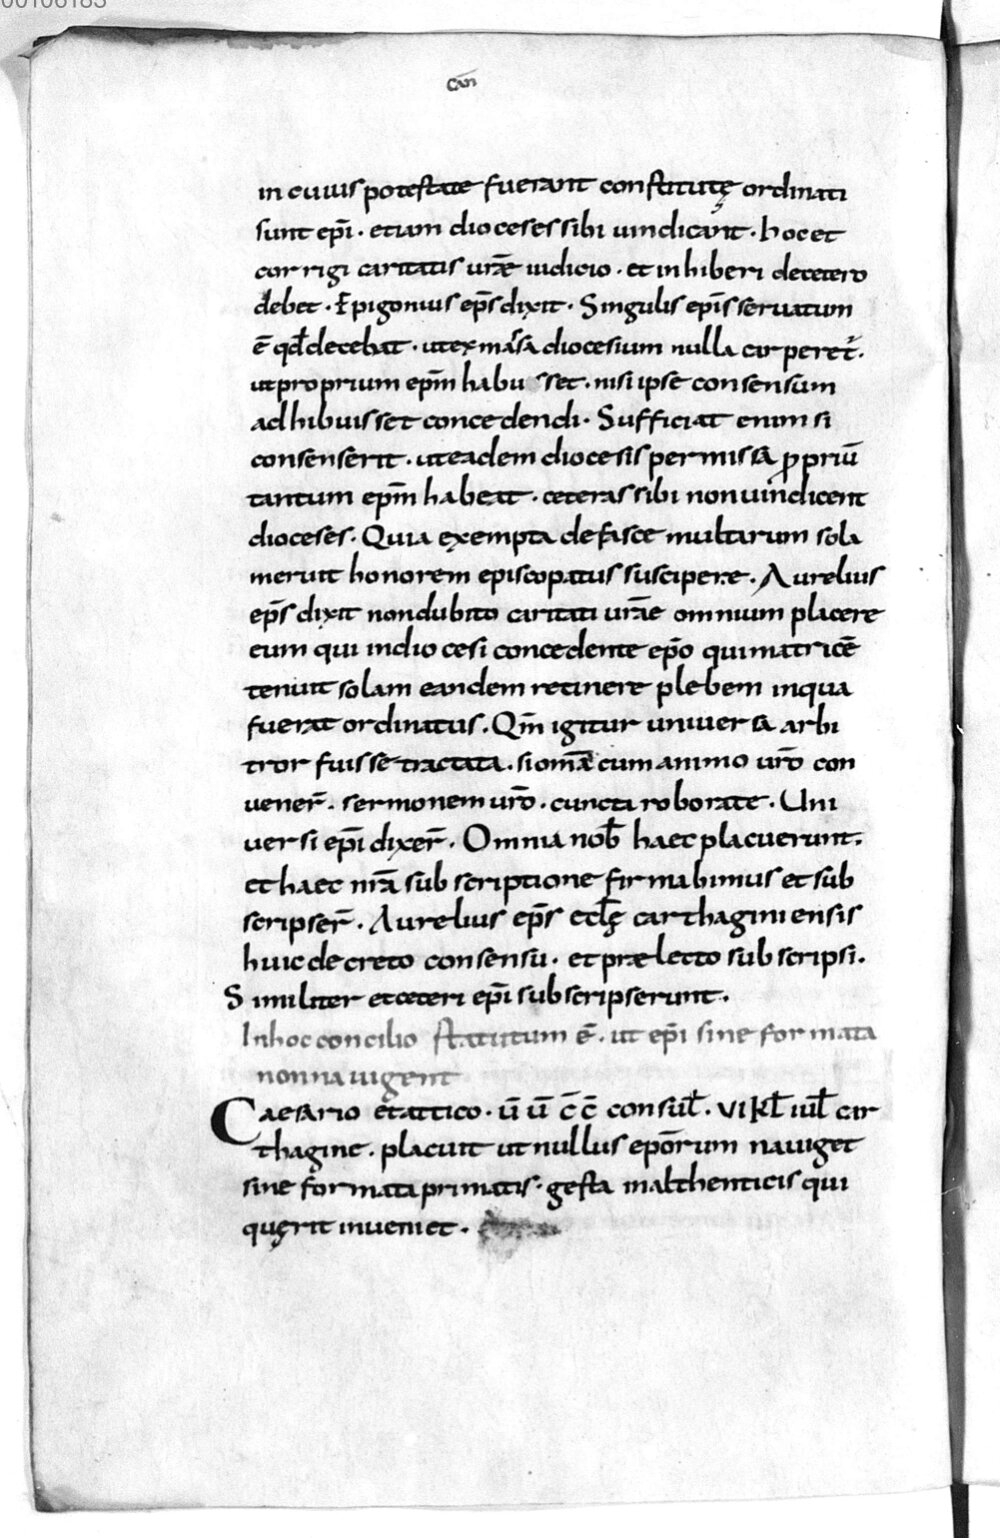 00106183
cañ
in cuius potestate fuerant constitutę ordinati
sunt ep̄i · etiam dioceses sibi uindicant · hoc et
corrigi caritatis ur̄ae iudicio · et inhiberi decetero
debet · Epigonius ep̄s dixit · Singulis ep̄is seruatum
ē qđ decebat · ut ex massa diocesium nulla carperet̄ ·
ut proprium ep̄m habuisset · nisi ipse consensum
adhibuisset concedendi · Sufficiat enim si
consenserit · ut eadem diocesis permissa ꝓpriū
tantum ep̄m habeat · ceteras sibi non uindicent
dioceses · Quia exempta de fasce multarum sola
meruit honorem episcopatus suscipere · Aurelius
ep̄s dixit non dubito caritati ur̄ae omnium placere
eum qui in diocesi concedente ep̄o qui matricē
tenuit solam eandem retinere plebem in qua
fuerat ordinatus · Qm̄ igitur uniuersa arbi
tror fuisse tractata · si om̄a cum animo ur̄o con
uener̄ · sermonem ur̄o · cuncta roborate · Uni
uersi ep̄i dixer̄ · Omnia nob̄ haec placuerunt ·
et haec nr̄a subscriptione firmabimus et sub
scripser̄ · Aurelius ep̄s eccl̄ę carthaginiensis
huic decreto consensu · et praelecto subscripsi ·
Similiter et ceteri ep̄i subscripserunt ·
In hoc concilio statutum ē · ut ep̄i sine formata
non nauigent
Caesario et attico · ū ū c̄ c̄ consul̄ · VI kl̄ iul̄ car
thagine · placuit ut nullus epōrum nauiget
sine formata primatis · gesta in althenticis qui
quęrit inueniet ·